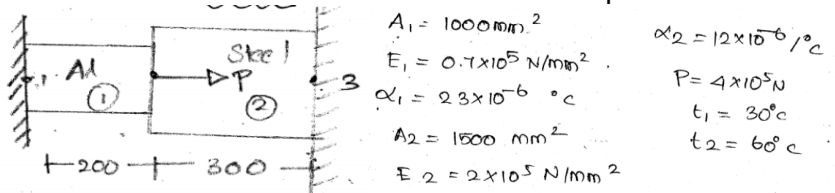 Al
Steel
1
①
P
②
3
200
300
A₁ = 1000mm²
E₁ = 0.7×10⁵ N/mm².
α₁ = 23×10⁻⁶ °c
A2 = 1500 mm²
E2 = 2×10⁵ N/mm²
α2 = 12×10⁻⁶/°c
P = 4×10⁵N
t₁ = 30°c
t2 = 60°c